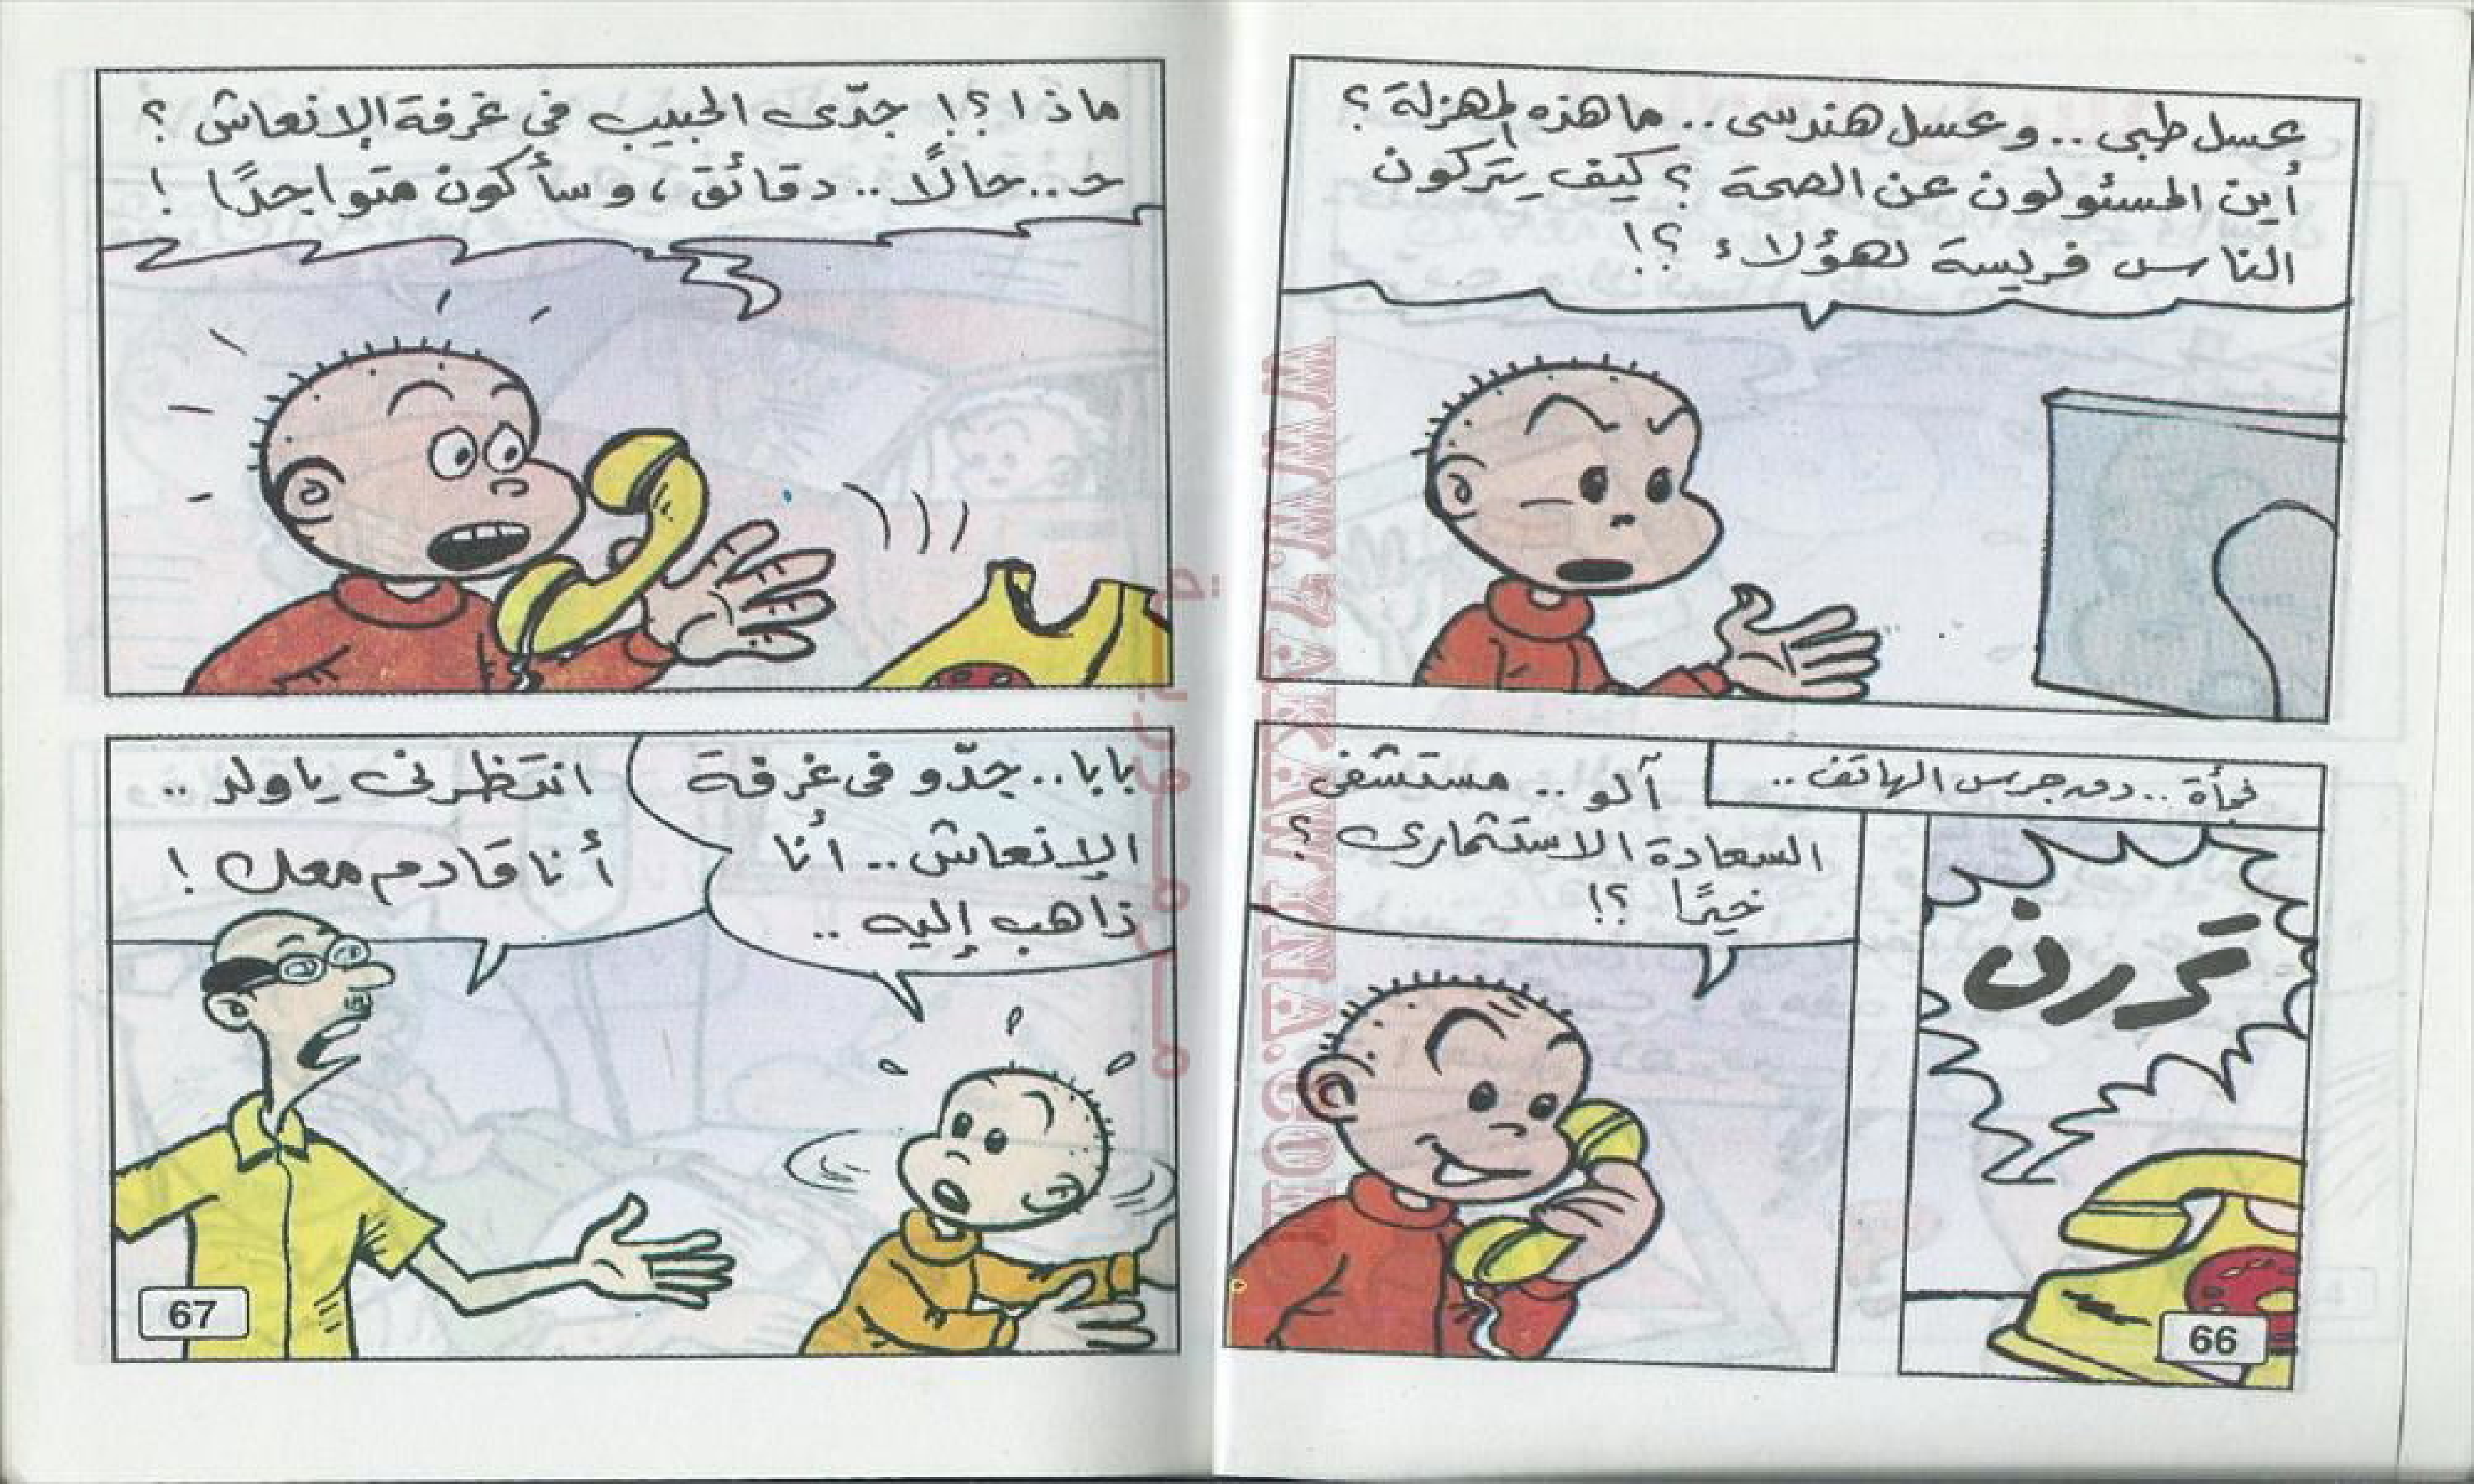 عسل طبى .. وعسل هندسى .. ما هذه المهزلة ؟
أين المسئولون عن الصحة ؟ كيف يتركون
الناس فريسة لهؤلاء ؟!
فجأة .. دق جرس الهاتف ..
تررن
آلو .. مستشفى
السعادة الاستثمارى ؟
خيرًا ؟!
66
ماذا ؟! جدّى الحبيب فى غرفة الإنعاش ؟
حـ .. حالًا .. دقائق ، وسأكون متواجدًا !
بابا .. جدّو فى غرفة
الإنعاش .. أنا
ذاهب إليه ..
انتظرنى يا ولد ..
أنا قادم معك !
67